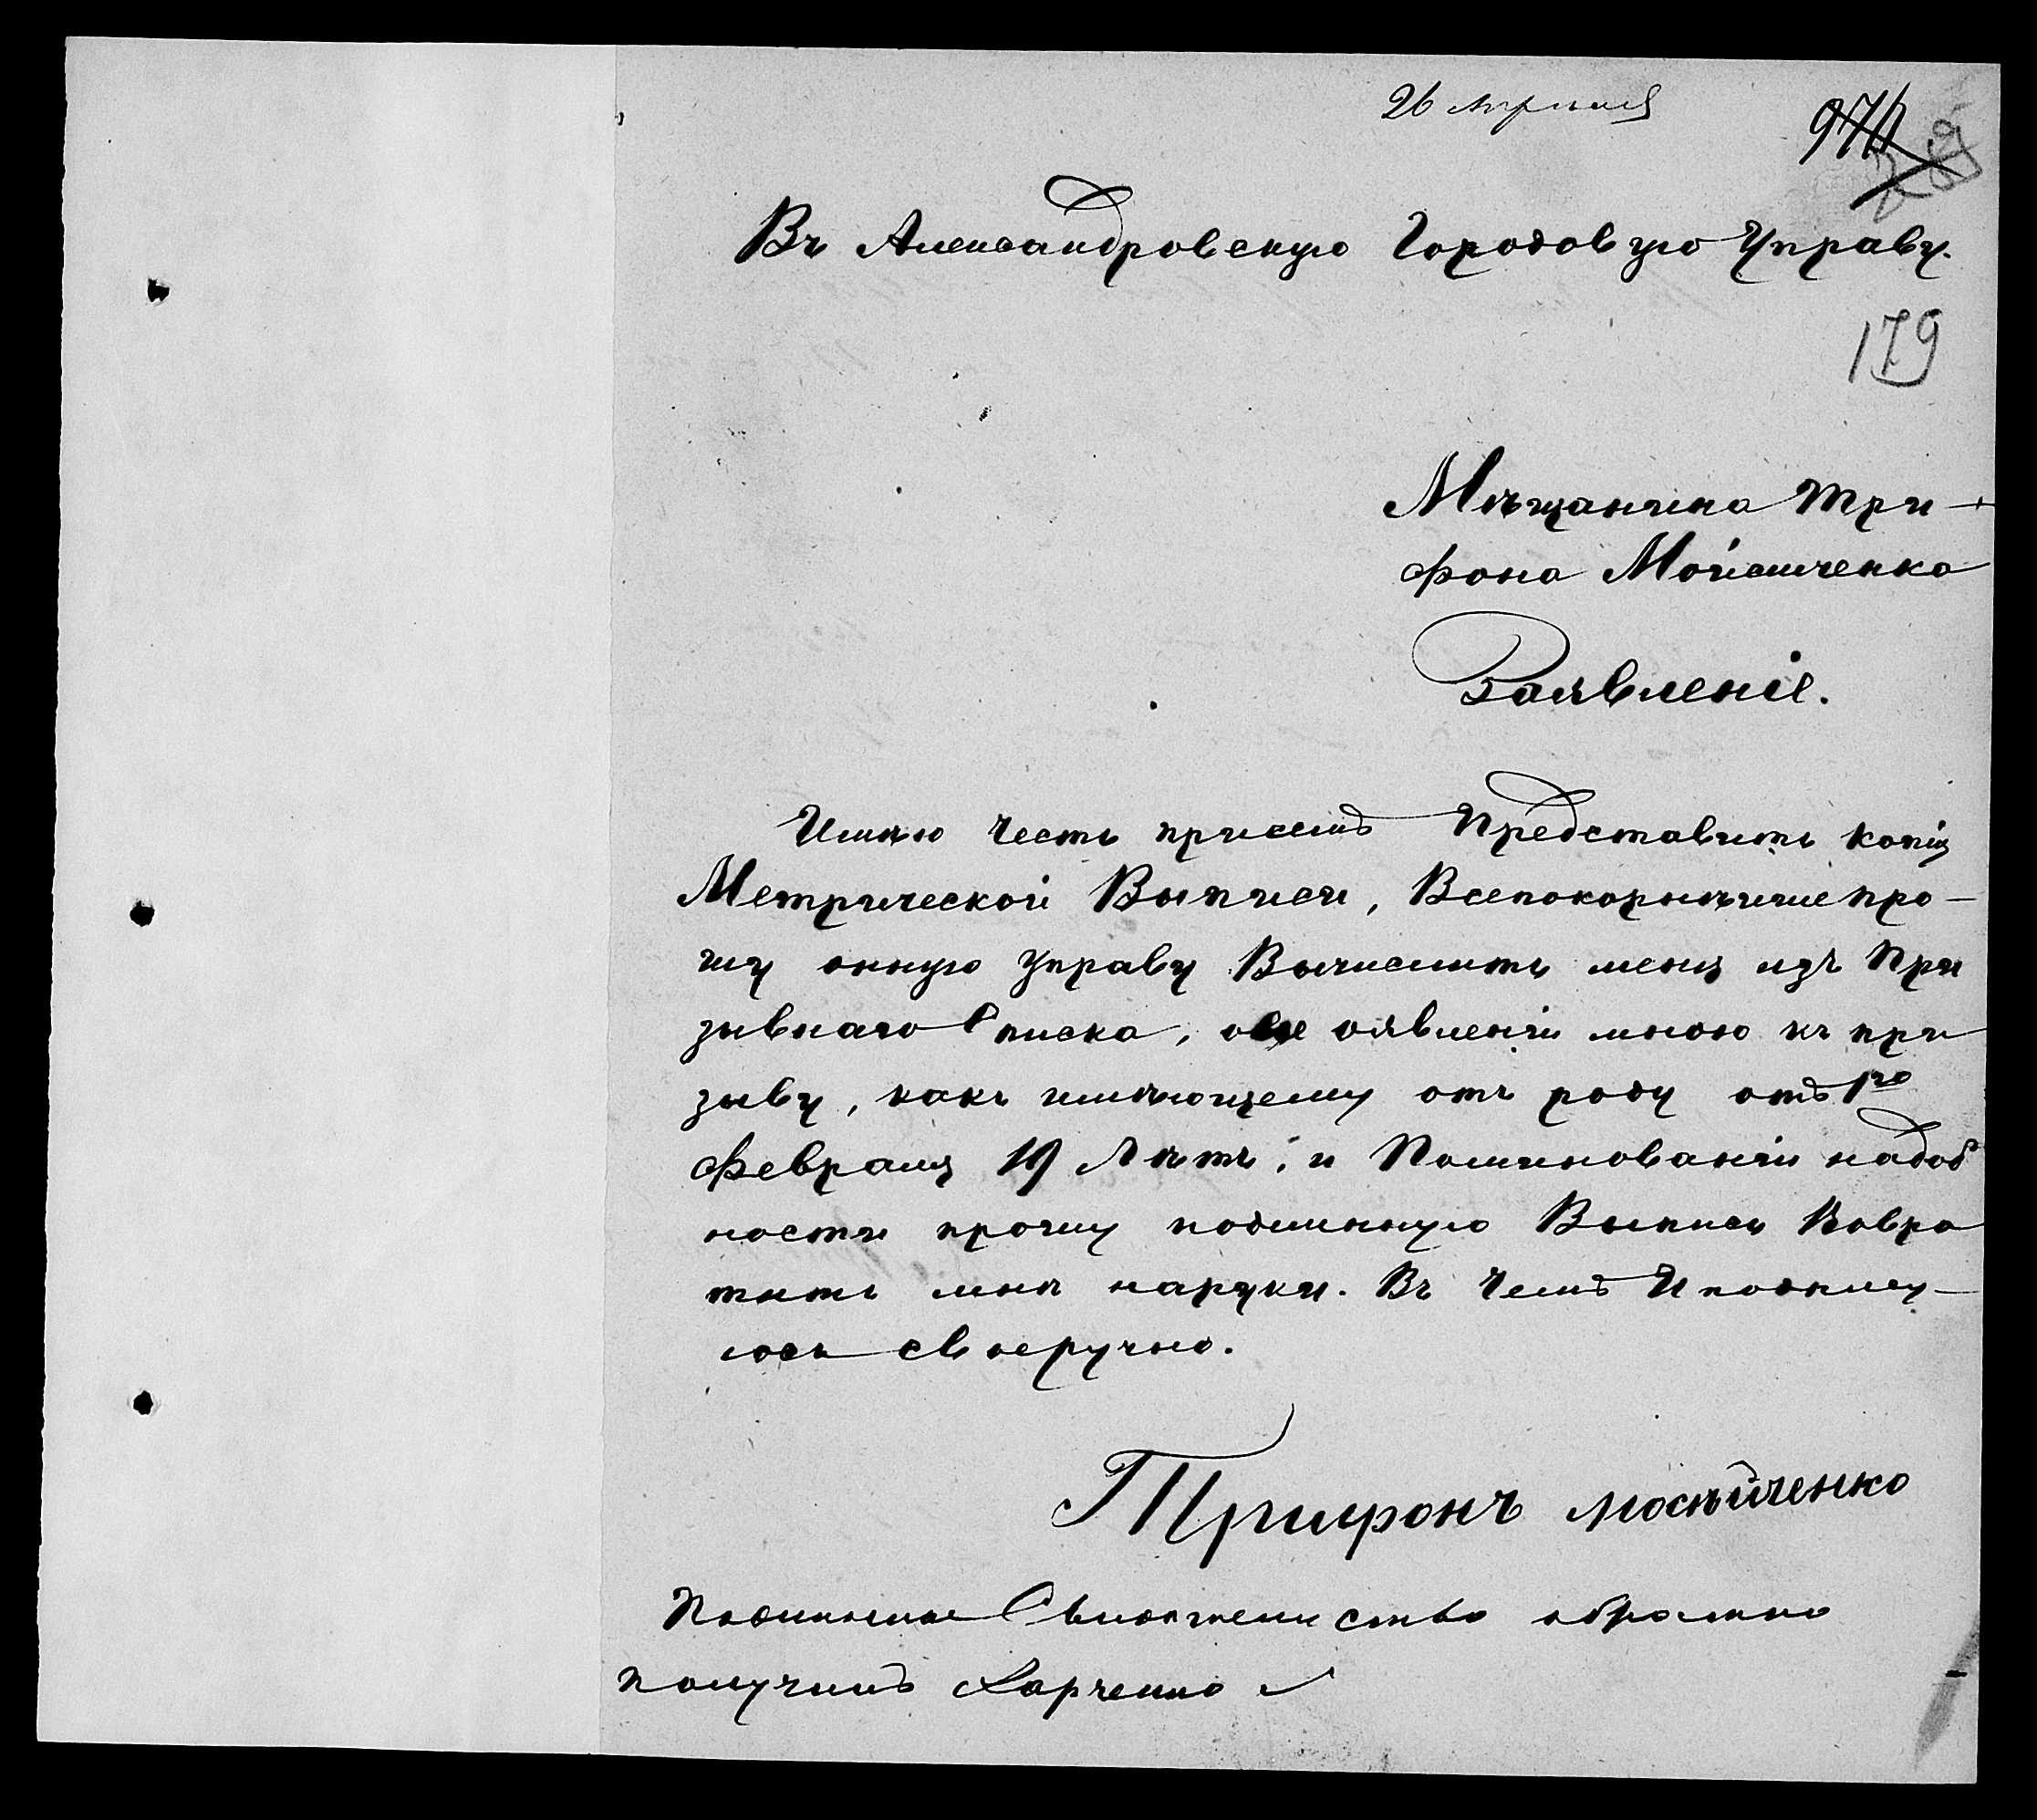 26 Апреля
970
Въ Александровскую Городовую Управу.
179
Мѣщанина Три-
фона Мойсиченко
Заявленіе.
Имѣю Честь присемъ Представить копія
Метрической Выписи, Всепокорнѣише про-
шу онную Управу Вычислить меня изъ При
зывнаго Списка, оявленіи мною къ при
зыву, какъ имѣющему отъ роду отъ 1го
Февраля 19 Лѣтъ, и Поминованіи надоб
ности прошу подлинную Выпись Вовра
тить мнѣ наруки. Въ Чемъ И подпису-
юсь своеручно.
Трифонъ Мосѣйченко
Подлинное Свидетелиство обратно
получилъ Харченко